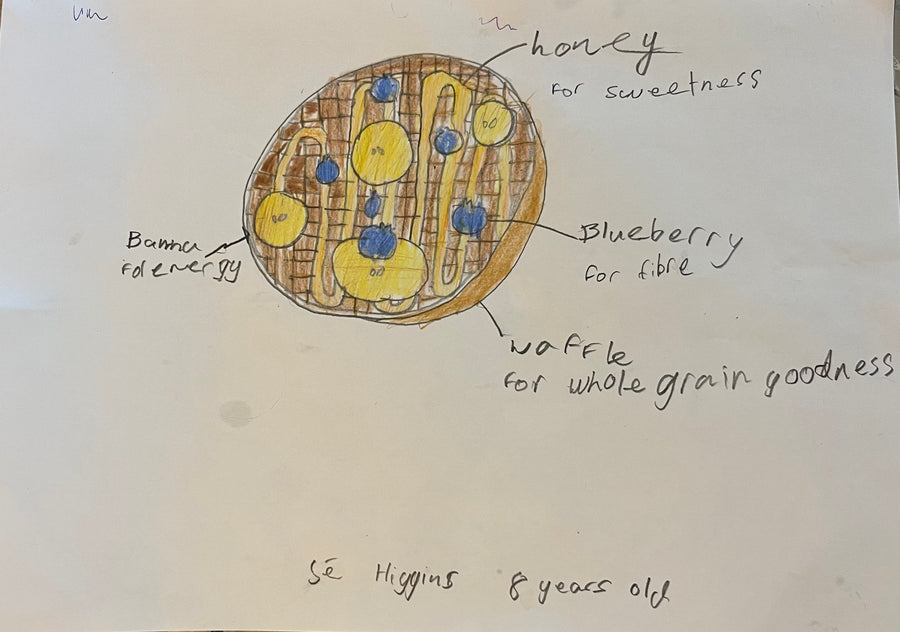 honey
for sweetness
Banna
for energy
Blueberry
for fibre
waffle
for whole grain goodness
Sé Higgins 8 years old